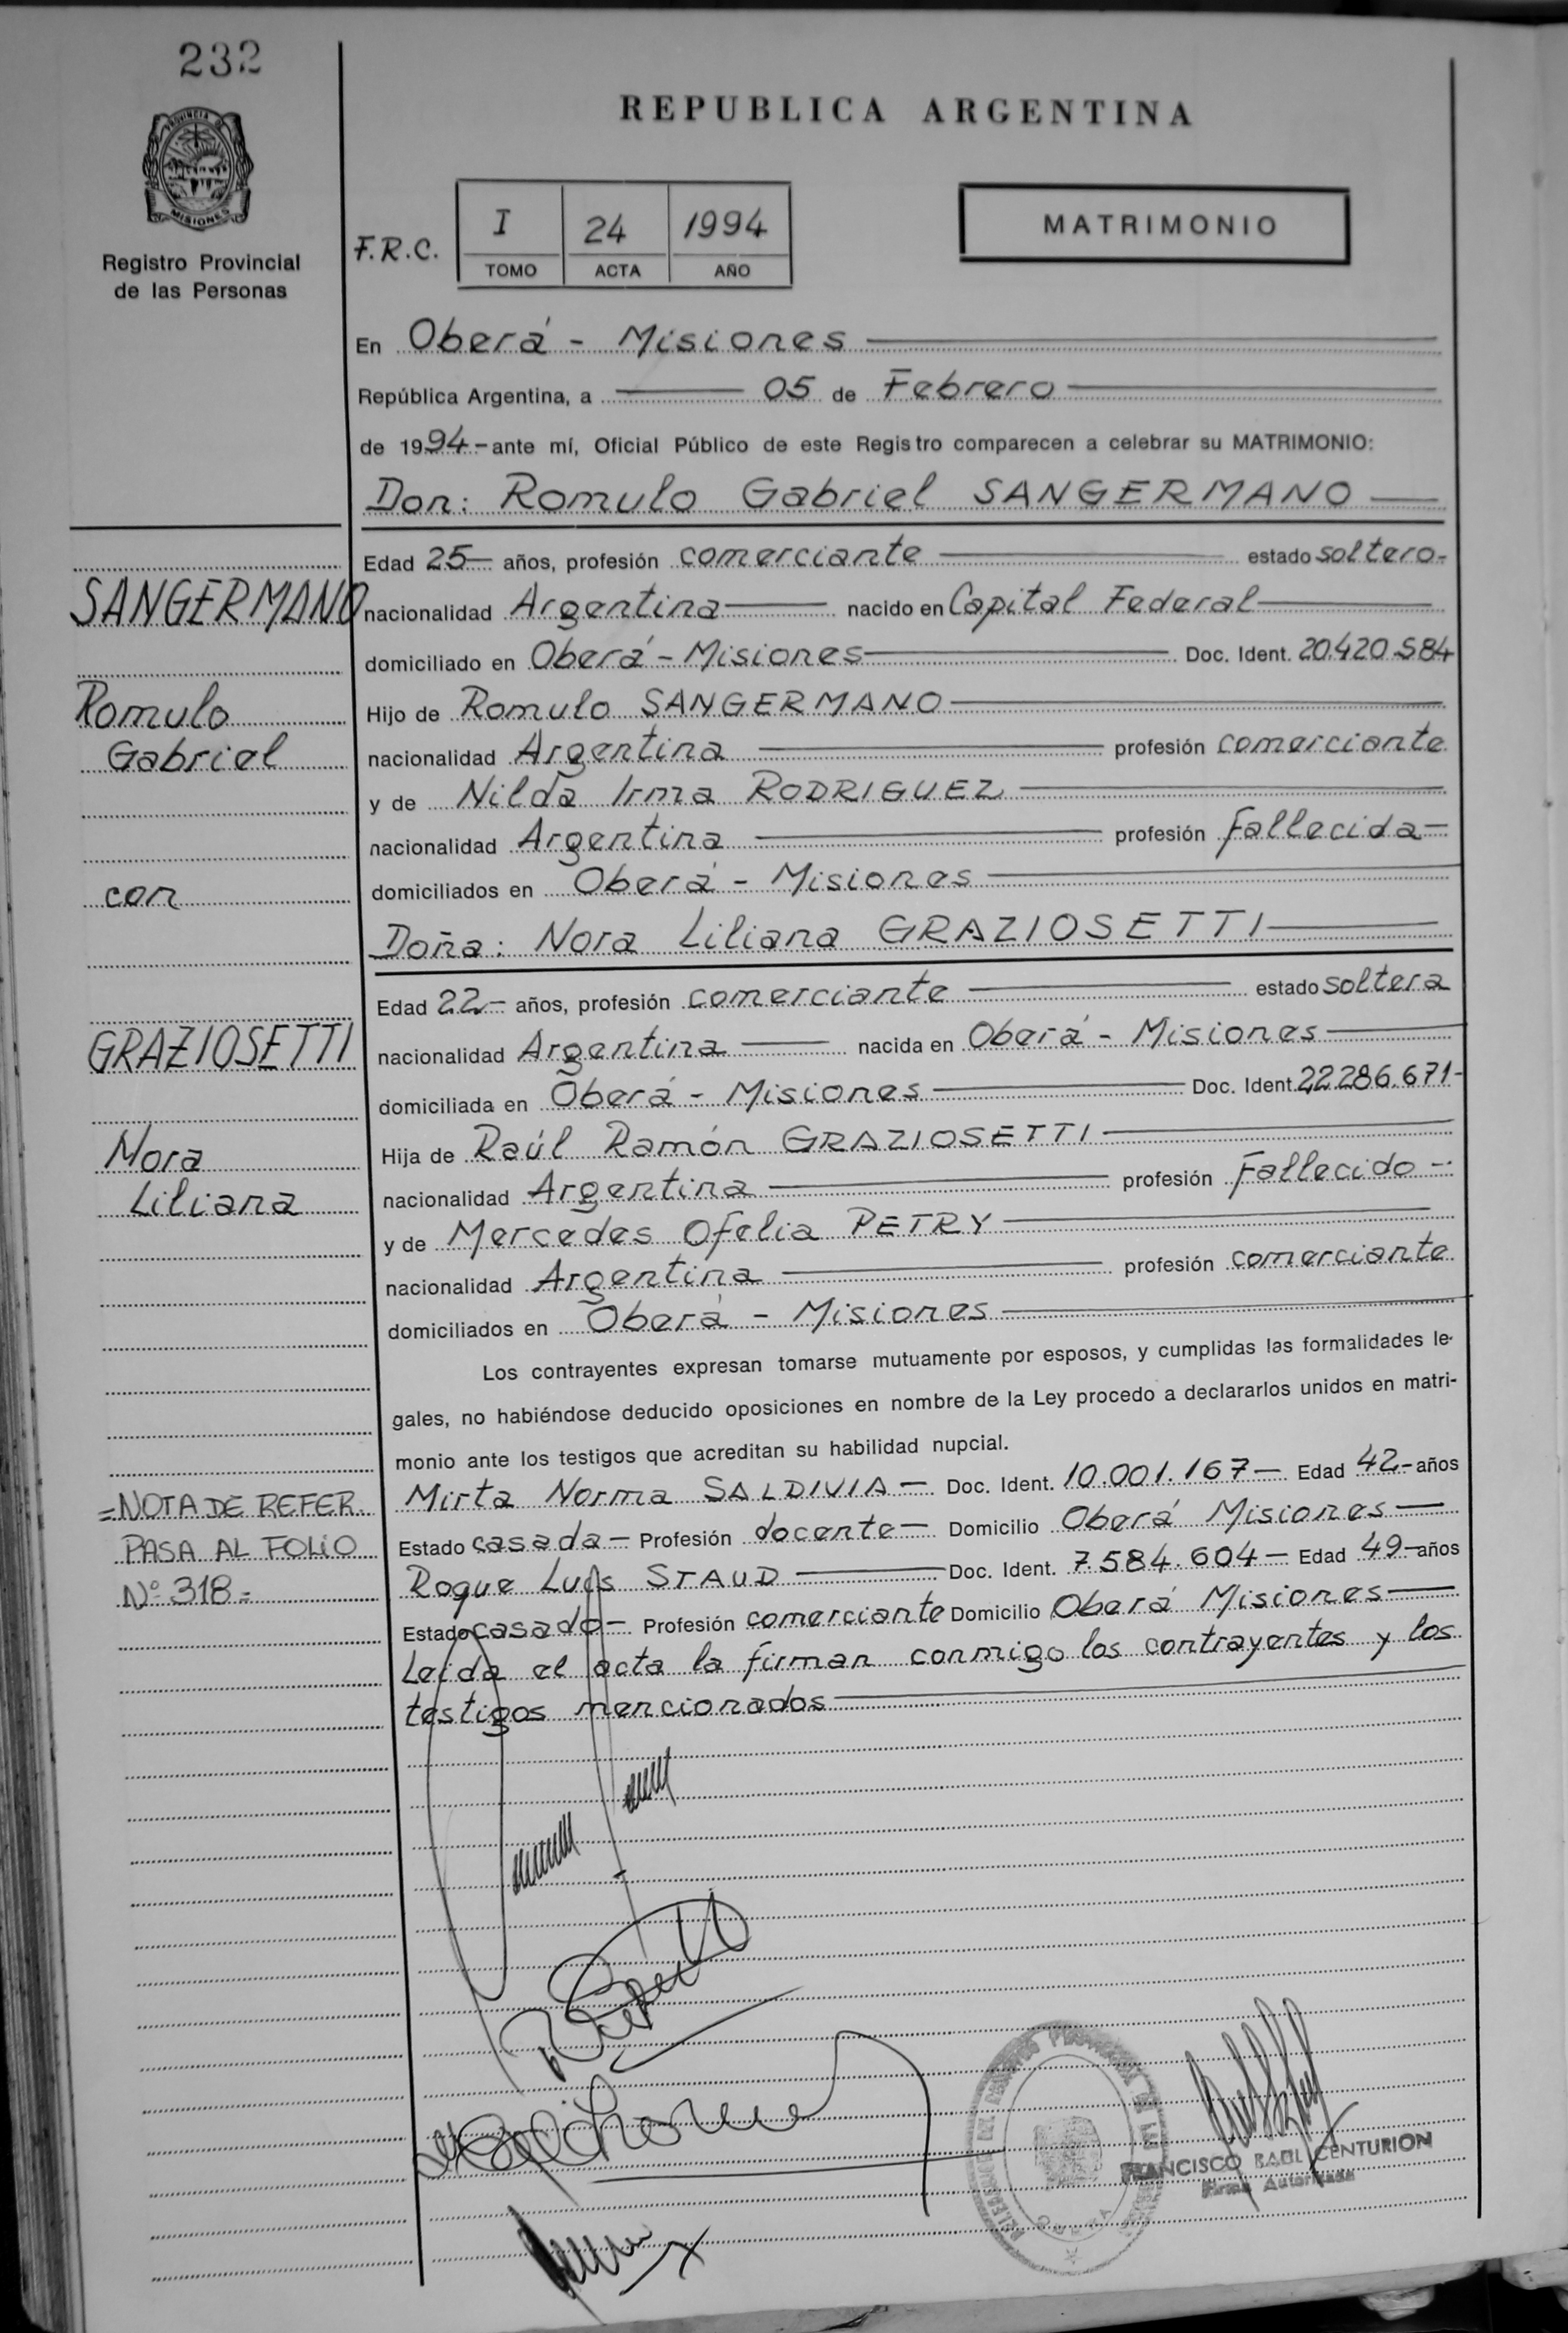 232
PROVINCIA D
MISIONES
Registro Provincial
de las Personas
REPUBLICA ARGENTINA
F.R.C.
I 24 1994
TOMO ACTA AÑO
MATRIMONIO
En Oberá - Misiones
República Argentina, a 05 de Febrero
de 1994- ante mí, Oficial Público de este Registro comparecen a celebrar su MATRIMONIO:
Don: Romulo Gabriel SANGERMANO
Edad 25- años, profesión comerciante estado soltero-
nacionalidad Argentina nacido en Capital Federal
domiciliado en Oberá - Misiones Doc. Ident. 20.420.584
Hijo de Romulo SANGERMANO
nacionalidad Argentina profesión comerciante
y de Nilda Irma RODRIGUEZ
nacionalidad Argentina profesión Fallecida-
domiciliados en Oberá - Misiones
Doña: Nora Liliana GRAZIOSETTI
Edad 22.- años, profesión comerciante estado soltera
nacionalidad Argentina nacida en Oberá - Misiones
domiciliada en Oberá - Misiones Doc. Ident. 22.286.671-
Hija de Raúl Ramón GRAZIOSETTI
nacionalidad Argentina profesión Fallecido-
y de Mercedes Ofelia PETRY
nacionalidad Argentina profesión comerciante
domiciliados en Oberá - Misiones
Los contrayentes expresan tomarse mutuamente por esposos, y cumplidas las formalidades le-
gales, no habiéndose deducido oposiciones en nombre de la Ley procedo a declararlos unidos en matri-
monio ante los testigos que acreditan su habilidad nupcial.
Mirta Norma SALDIVIA - Doc. Ident. 10.001.167- Edad 42- años
Estado casada- Profesión docente- Domicilio Oberá Misiones-
Roque Luis STAUD Doc. Ident. 7.584.604- Edad 49- años
Estado casado- Profesión comerciante Domicilio Oberá Misiones-
Leida el acta la firman conmigo los contrayentes y los
testigos mencionados
SANGERMANO
Romulo
Gabriel
con
GRAZIOSETTI
Nora
Liliana
=NOTA DE REFER.
PASA AL FOLIO
Nº 318=
FRANCISCO RAUL CENTURION
Firma Autorizada